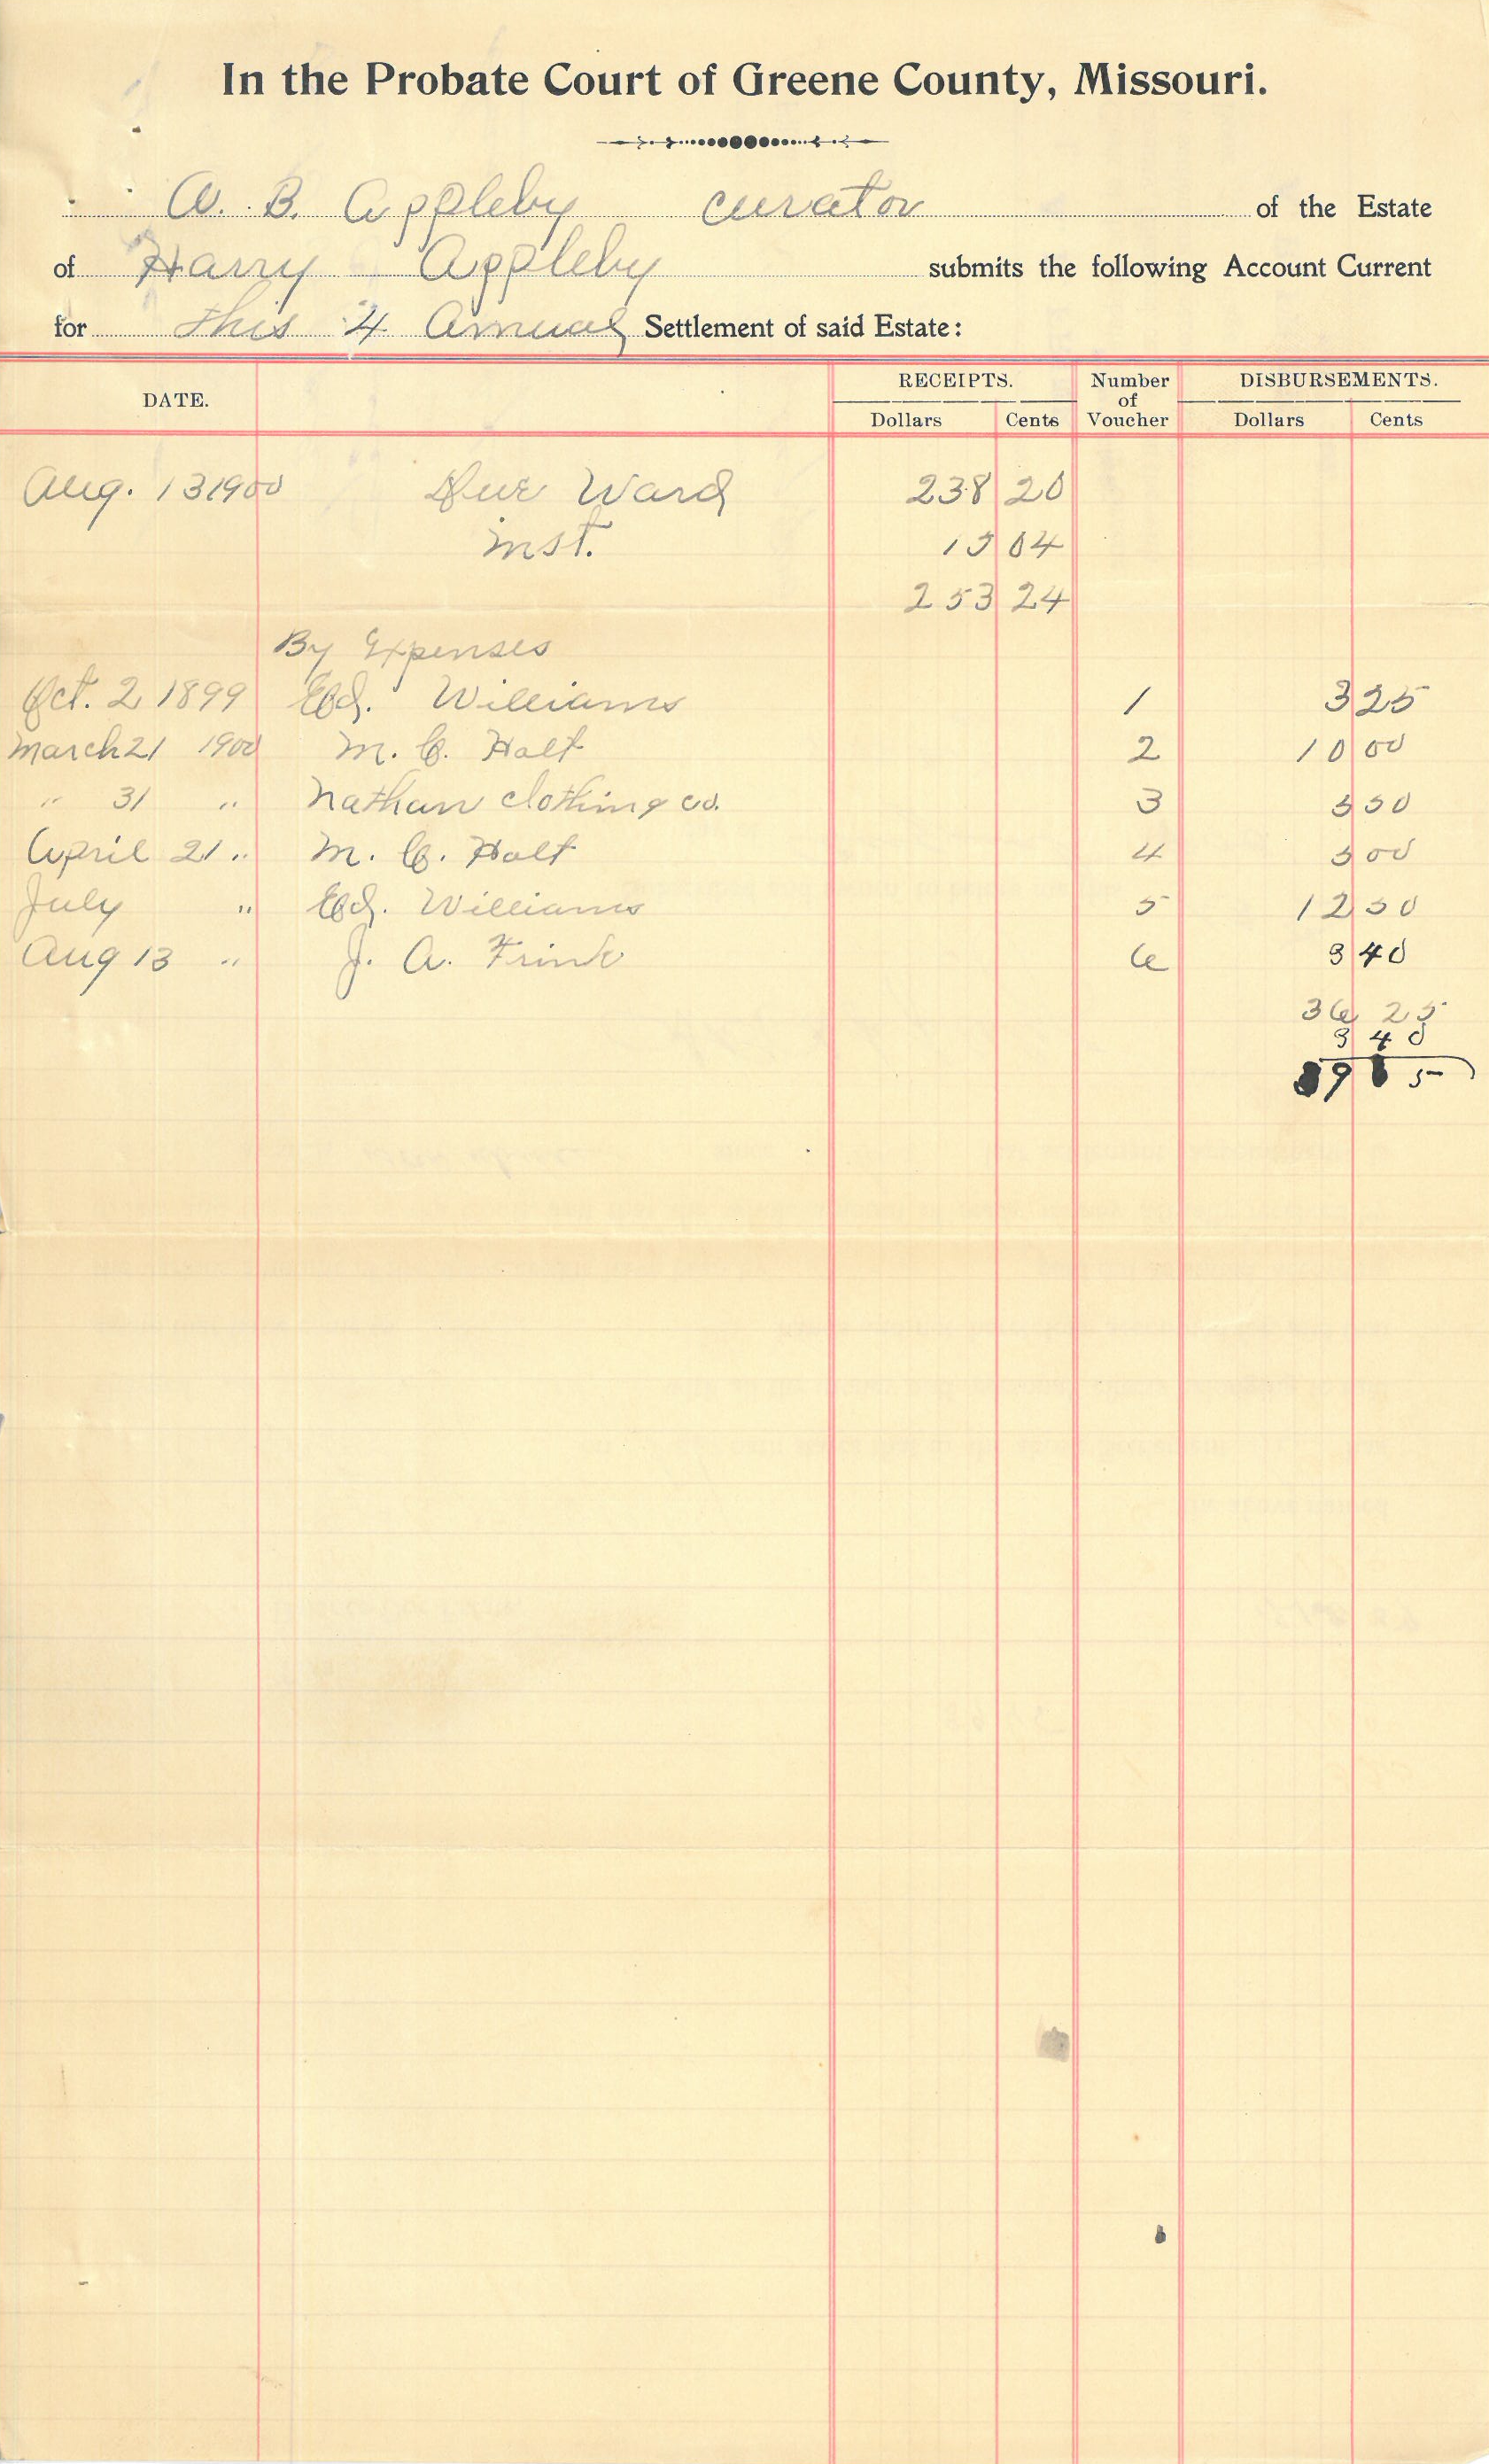 In the Probate Court of Greene County, Missouri.
A. B. Appleby curator of the Estate
of Harry Appleby submits the following Account Current
for this 4 Annual Settlement of said Estate:
DATE. RECEIPTS. Number of Voucher DISBURSEMENTS.
Dollars Cents Dollars Cents
Aug. 13 1900 Due Ward 238 20
inst. 15 04
253 24
By Expenses
Oct. 2 1899 Ed. Williams 1 3 25
March 21 1900 M. C. Holt 2 10 00
" 31 " Nathan Clothing co. 3 5 50
April 21 " M. C. Holt 4 5 00
July " Ed. Williams 5 12 50
Aug 13 " J. A. Frink 6 3 40
36 25
3 40
39 65